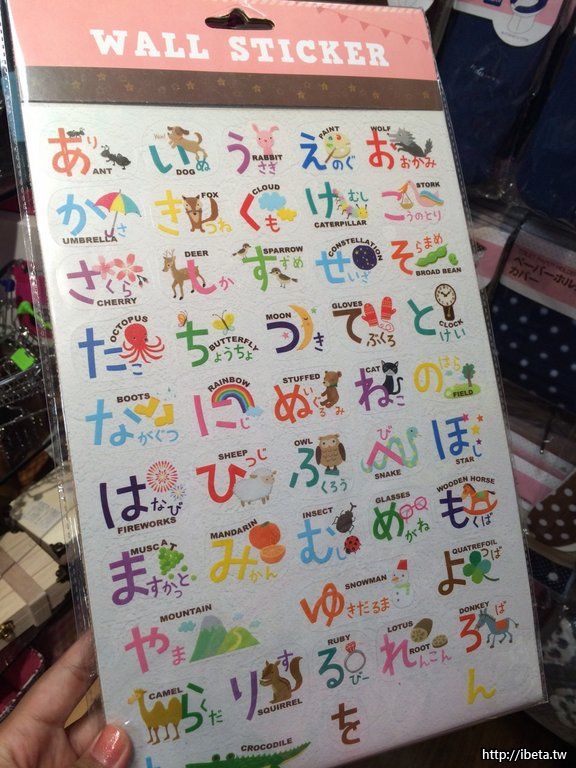 WALL STICKER
あり ANT
いぬ DOG
うさぎ RABBIT
えのぐ PAINT
おおかみ WOLF
かさ UMBRELLA
きつね FOX
くも CLOUD
けむし CATERPILLAR
こうのとり STORK
さくら CHERRY
しか DEER
すずめ SPARROW
せいざ CONSTELLATION
そらまめ BROAD BEAN
たこ OCTOPUS
ちょうちょ BUTTERFLY
つき MOON
てぶくろ GLOVES
とけい CLOCK
ながぐつ BOOTS
にじ RAINBOW
ぬいぐるみ STUFFED
ねこ CAT
のはら FIELD
はなび FIREWORKS
ひつじ SHEEP
ふくろう OWL
へび SNAKE
ほし STAR
ますかっと MUSCAT
みかん MANDARIN
むし INSECT
めがね GLASSES
もくば WOODEN HORSE
やま MOUNTAIN
ゆきだるま SNOWMAN
よつば QUATREFOIL
らくだ CAMEL
りす SQUIRREL
るびー RUBY
れんこん LOTUS ROOT
ろば DONKEY
CROCODILE
を
ん
ペーパーホル
カバー
http://ibeta.tw